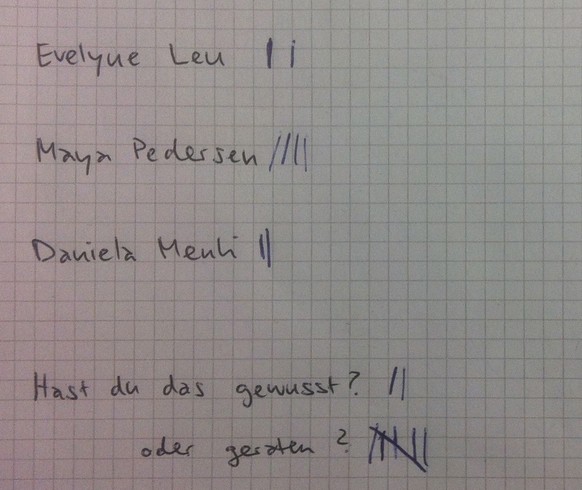 Evelyne Leu ||
Maya Pedersen ||||
Daniela Meuli ||
Hast du das gewusst? ||
oder geraten?